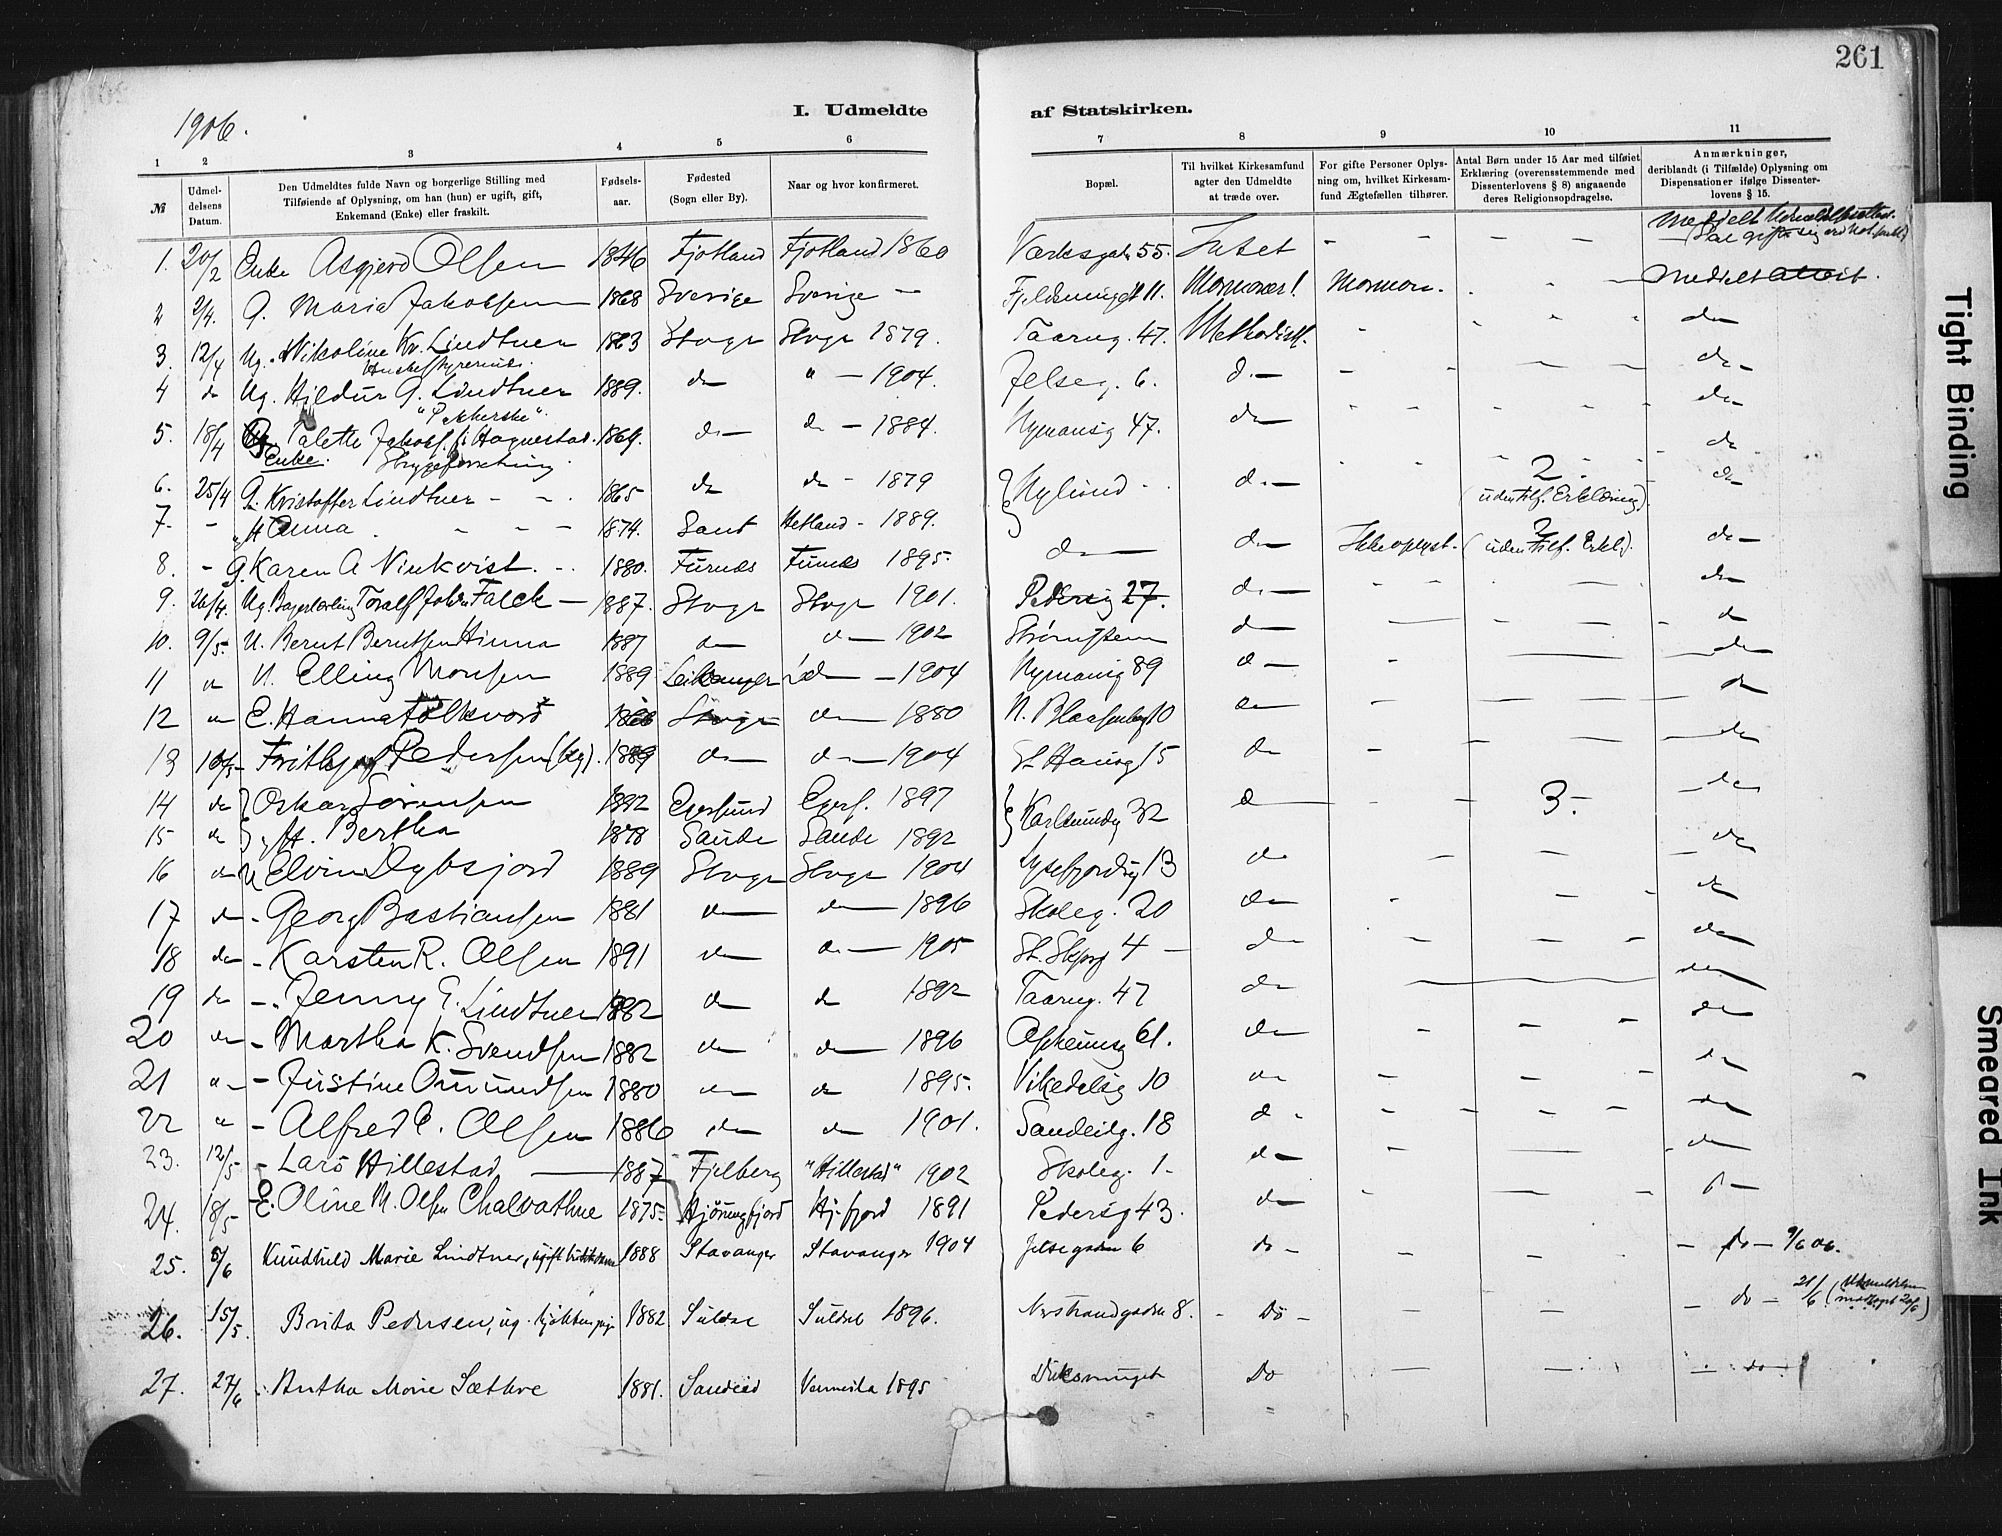 261
1906.
I. Udmeldte af Statskirken.
1 2 3 4 5 6 7 8 9 10 11
№
Udmeldelsens Datum.
Den Udmeldtes fulde Navn og borgerlige Stilling med Tilføiende af Oplysning, om han (hun) er ugift, gift, Enkemand (Enke) eller fraskilt.
Fødselsaar.
Fødested (Sogn eller By).
Naar og hvor konfirmeret.
Bopæl.
Til hvilket Kirkesamfund agter den Udmeldte at træde over.
For gifte Personer Oplysning om, hvilket Kirkesamfund Ægtefællen tilhører.
Antal Børn under 15 Aar med tilføiet Erklæring (overensstemmende med Dissenterlovens § 8) angaaende deres Religionsopdragelse.
Anmærkninger, deriblandt (i Tilfælde) Oplysning om Dispensationer ifølge Dissenterlovens § 15.
1. 20/2 Enke Asgjerd Olsen 1846 Fjotland Fjotland 1860 Verksgd. 55. Intet - - - -
2 2/4. G. Maria Jakobsen 1868 Sverige Sverige - 11. Mormoner! Mormon. - Meddelt
3. 12/4 Ug. Nikoline Kr. Lindtner 1863 Stvgr Stvgr 1879. Taarng. 47. Methodist. - do
4 do Ug. Hildur G. Lindtner 1889. do " - 1904. Jelseg. 6. do - - do -
5. 18/4 Enke. Talette Jakobs. 1864. do - do - 1884. Nymansg 47. do do -
6. 25/4 G. Kristoffer Lindtner - - 1865 do do - 1879 Nylund - do - 2 (uden tilf. Erklæring). do
7. - " H Anna - - - 1874. Sand Hetland - 1889. do
8. - g. Karen A Ninkvist. - 1880. Furnes Furnes 1895. do do Ikke oplyst. 2 (uden tilf. Erkl.). do -
9. 26/4. Ug. Toralf Falck - 1887. Stvgr Stvgr 1901. Pedersg 27. do - - - do
10. 9/5. U. Bernt Berntsen Hinna 1887 do do - 1902 Strømsteen do - - do
11 do U. Elling Monsen 1889 Leikanger do - 1904 Nymansg 89 do - - - do
12 do E. Hanna Folkvord 1866 Stvgr do 1880 N. Blaasenbg 10 do - - do
13 10/5 Frithjof Pedersen (Ug). 1889 do do - 1904 St. Hansg 15 do - - do
14 do Oskar Sørensen 1882 Egersund Egers. 1897 Karlsundg 32 do - - 3. - do
15 do " H. Bertha 1878 Saude Saude 1892 do
16 do U Elvin Dybsjord 1889 Stvgr Stvgr 1904 Lysefjordsg 13 do - - do
17 do - Georg Bastiansen 1881 do do - 1896 Skoleg. 20 do - - do
18 do - Karsten R. Olsen 1891 do do - 1905 St. Skjærg 4 - do - - - do
19 do - Jenny G. Lindtner 1882 do do 1892 Taarng. 47 do - - do
20 do - Martha K. Svendsen 1882 do do - 1896 61. do - - - do
21 do - Justine Omundsen 1880 do do 1895. Vikedalsg 10 do - - - do
22 " - Alfred C. Olsen 1886 do do 1901. Sandeidg. 18 do - - - - do
23. 12/5 - Lars Hillestad 1887 Fjelberg "Hillestad" 1902 Skoleg. 1 - do - - - do
24. 18/5 - E. Oline M. Olsen Chalvathne 1875. Hjørungfjord Hj.fjord 1891 Pedersg 43. do - - -
25. 5/6 Kundhild Marie Lindtner, ugift 1888 Stavanger Stavanger 1904 Jelsegaden 6 do - - - - do - 9/6 06.
26. 15/5. Brita Pedersen, ug. kjøkkenpige 1882 Suldal Suldal 1896. Nerstrandgaden 8. - Do - - do - 21/6 (Udmeldelsen modtaget 20/6)
27. 27/6 Bertha Marie Sæthre 1881. Sandeid 1895 Do - - - do -
Tight Binding
Smeared Ink